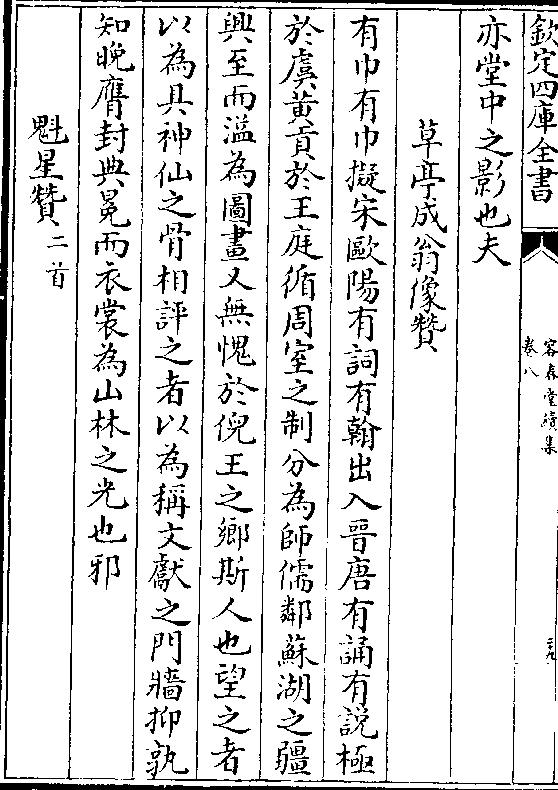 欽定四庫全書
容春堂續集
卷八
三九
亦堂中之影也夫
草亭成翁像贊
有巾有巾擬宋歐陽有詞有翰出入晉唐有誦有説極
於虞黄貢於王庭循周室之制分為師儒鄰蘇湖之疆
興至而溢為圖畫又無愧於倪王之鄉斯人也望之者
以為具神仙之骨相評之者以為稱文獻之門牆抑孰
知晚膺封典冕而衣裳為山林之光也邪
魁星贊二首